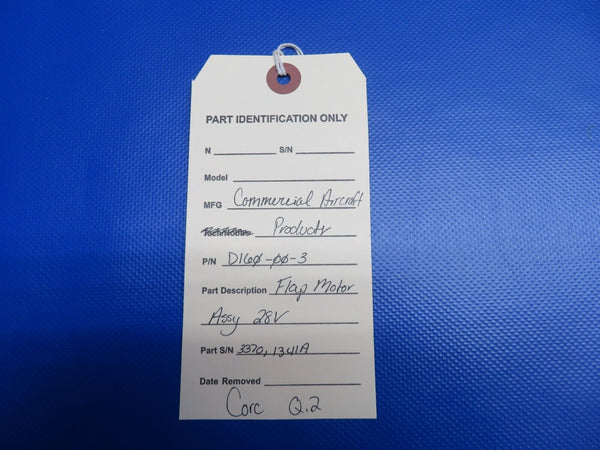 PART IDENTIFICATION ONLY
N S/N
Model
MFG Commercial Aircraft
Products
P/N D160-00-3
Part Description Flap Motor
Assy 28V
Part S/N 3370, 1341A
Date Removed
Core Q.2